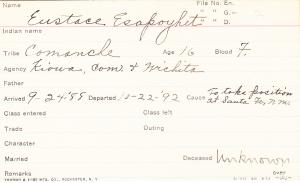 Name File No. En.
Eustace Esapoyhet " " G.—
" " D.
Indian name
Tribe Comanche Age 16 Blood F.
Agency Kiowa, Com. & Wichita
Father
Arrived 9-24-'88 Departed 10-22-'92 Cause To take position
at Santa Fe, N. M.
Class entered Class left
Trade Outing
Character
Married Deceased Unknown
Remarks over
YAWMAN & ERBE MFG. CO., ROCHESTER, N. Y.